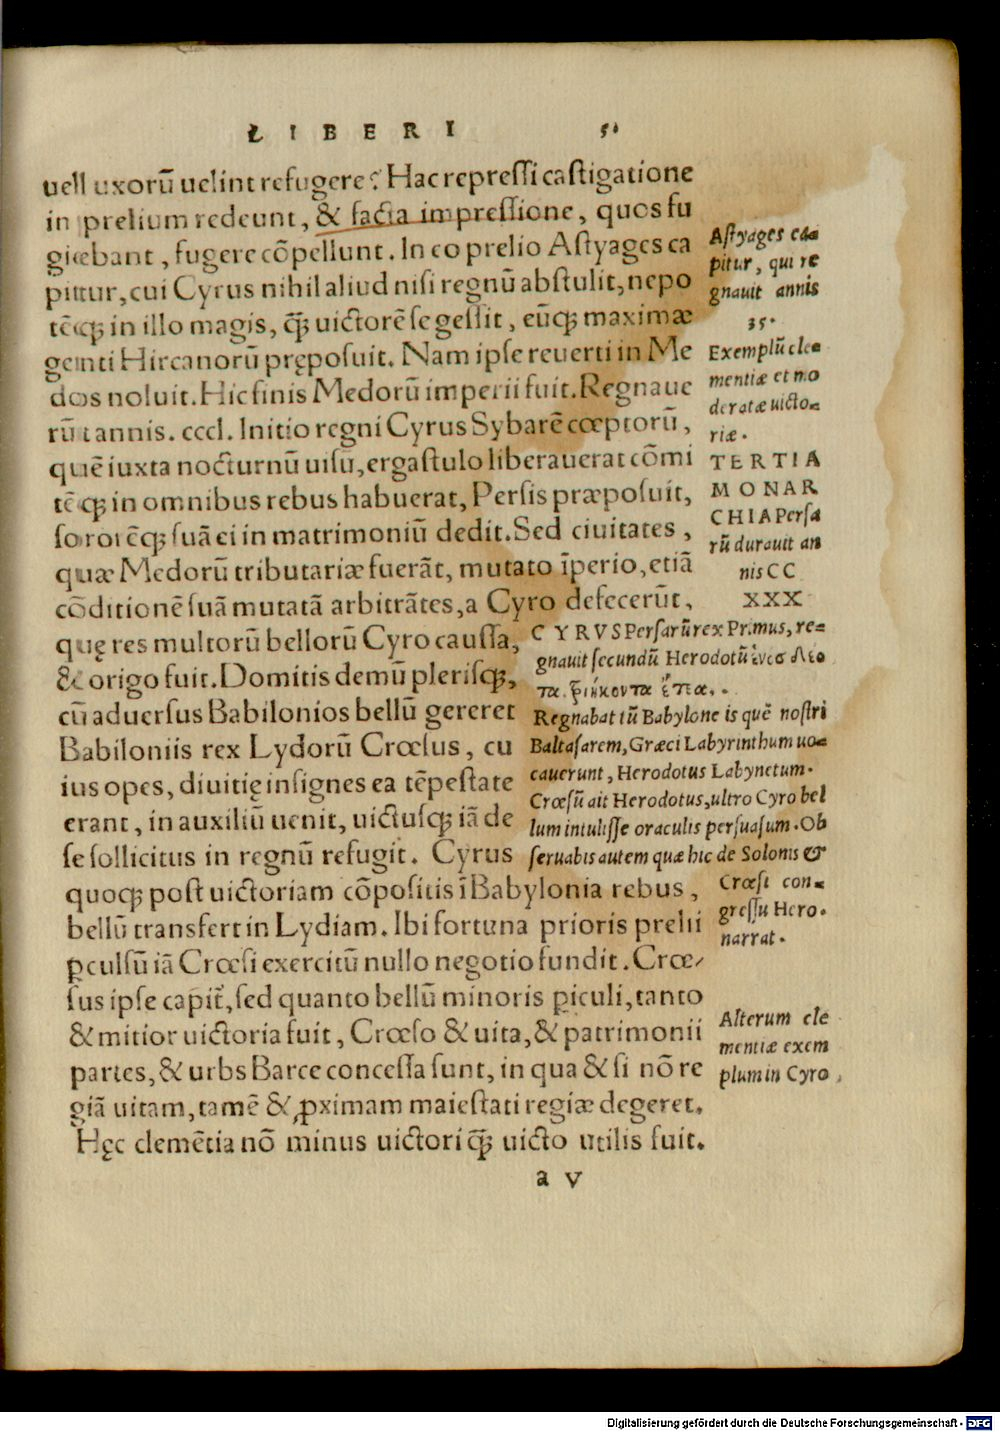 LIBERI 5.
uell uxorū uelint refugere? Hac repressi castigatione
in prelium redeunt, & facta impressione, quos fu
giebant, fugere cōpellunt. In eo prelio Astyages ca
pittur, cui Cyrus nihil aliud nisi regnū abstulit, nepo
tēqꝫ in illo magis, q̄ꝫ uictorē se gessit, eūqꝫ maximæ
genti Hircanorū pręposuit. Nam ipse reuerti in Me
dos noluit. Hic finis Medorū imperii fuit. Regnaue
rūt annis. cccl. Initio regni Cyrus Sybarē cœptorū,
quē iuxta nocturnū uisū, ergastulo liberauerat cōmi
tēqꝫ in omnibus rebus habuerat, Persis præposuit,
sororēqꝫ suā ei in matrimoniū dedit. Sed ciuitates,
quæ Medorū tributariæ fuerāt, mutato īperio, etiā
cōditionē suā mutatā arbitrātes, a Cyro defecerūt,
quę res multorū bellorū Cyro caussa,
& origo fuit. Domitis demū plerisqꝫ,
cū aduersus Babilonios bellū gereret
Babiloniis rex Lydorū Crœsus, cu
ius opes, diuitię insignes ea tēpestate
erant, in auxiliū uenit, uictusqꝫ iā de
se sollicitus in regnū refugit. Cyrus
quoqꝫ post uictoriam cōpositis ī Babylonia rebus,
bellū transfert in Lydiam. Ibi fortuna prioris prelii
ꝑculsū iā Crœsi exercitū nullo negotio fundit. Crœ/
sus ipse capit̄, sed quanto bellū minoris ꝑiculi, tanto
& mitior uictoria fuit, Crœso & uita, & patrimonii
partes, & urbs Barce concessa sunt, in qua & si nō re
giā uitam, tamē & ꝓximam maiestati regiæ degeret.
Hęc clemētia nō minus uictori q̄ꝫ uicto utilis fuit.
a v
Astyages ca-
pitur, qui re
gnauit annis
35.
Exemplū cle-
mentiæ et mo
deratæ uicto-
riæ.
TERTIA
MONAR
CHIA Persa
rū durauit an
nis CC
XXX
CYRVS Persarū rex Primus, re-
gnauit secundū Herodotū
Regnabat tū Babylone is quē nostri
Baltasarem, Græci Labyrinthum uo-
cauerunt, Herodotus Labynetum.
Crœsū ait Herodotus, ultro Cyro bel
lum intulisse oraculis persuasum. Ob
seruabis autem quæ hic de Solonis &
Crœsi con-
gressu Hero.
narrat.
Alterum cle
mentiæ exem
plum in Cyro,
Digitalisierung gefördert durch die Deutsche Forschungsgemeinschaft - DFG